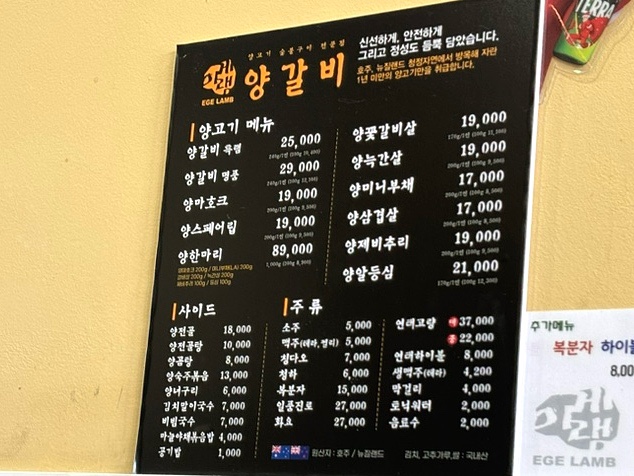 TERRA
양고기 숯불구이 전문점
양갈비
EGE LAMB
신선하게, 안전하게
그리고 정성도 듬뿍 담았습니다.
호주, 뉴질랜드 청정자연에서 방목해 자란
1년 미만의 양고기만을 취급합니다.
양고기 메뉴
양갈비 특템 25,000
양갈비 명품 29,000
양마호크 19,000
양스페어립 19,000
양한마리 89,000
양꽃갈비살 19,000
양늑간살 19,000
양미너부채 17,000
양삼겹살 17,000
양제비추리 19,000
양알등심 21,000
사이드
양전골 18,000
양전골탕 10,000
양곰탕 8,000
양숙주볶음 13,000
양너구리 6,000
김치말이국수 7,000
비빔국수 7,000
마늘야채볶음밥 4,000
공기밥 1,000
주류
소주 5,000
맥주(테라, 켈리) 5,000
칭다오 7,000
청하 6,000
복분자 15,000
일품진로 27,000
화요 27,000
연태고량 대 37,000
중 22,000
연태하이볼 8,000
생맥주(테라) 4,200
막걸리 4,000
토닉워터 2,000
음료수 2,000
원산지 : 호주 / 뉴질랜드
김치, 고추가루, 쌀 : 국내산
추가메뉴
복분자 하이볼
8,00
EGE LAMB